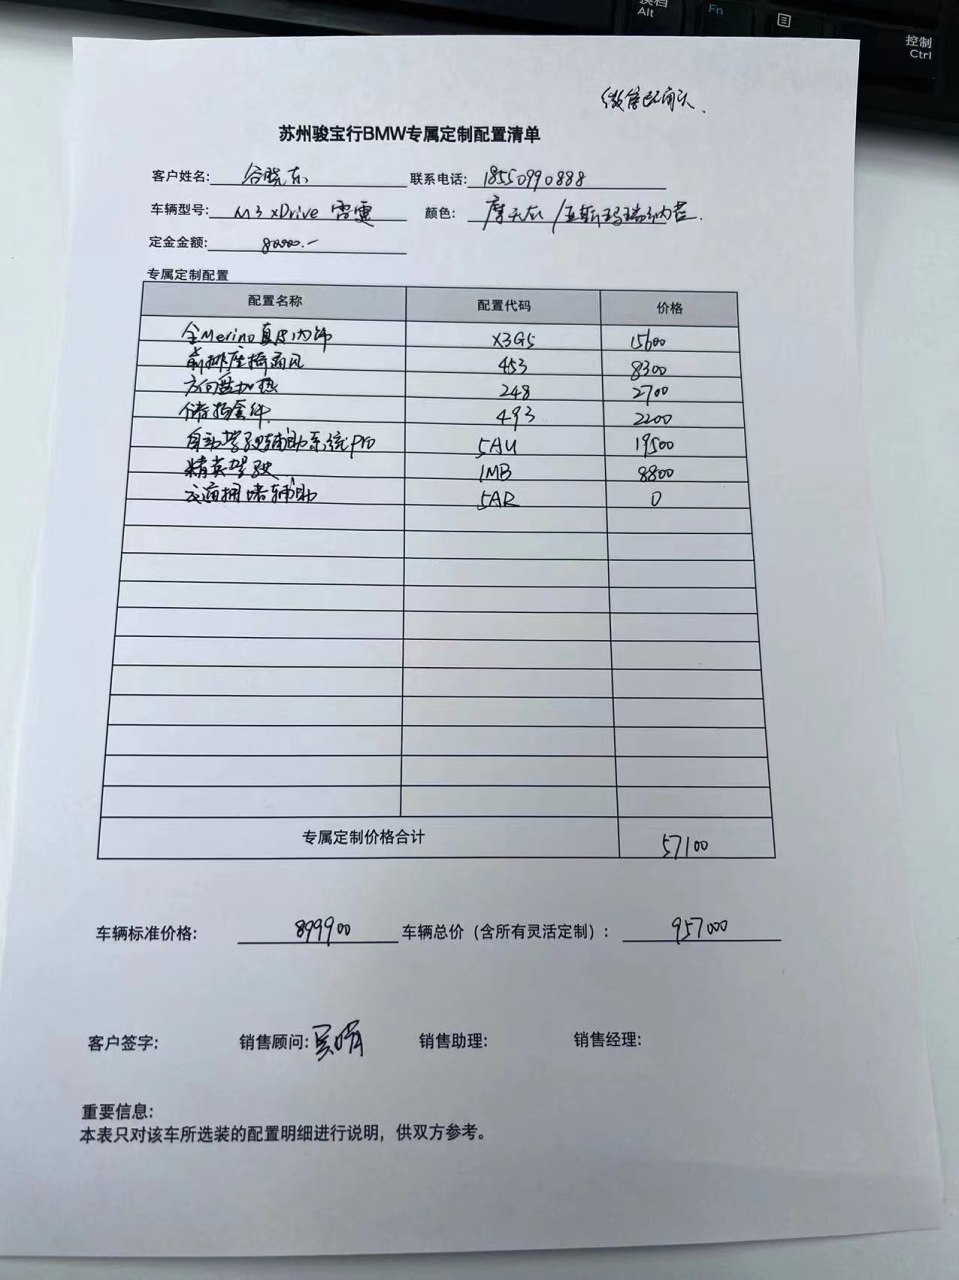 换档
Alt
Fn
控制
Ctrl
微信已确认.
苏州骏宝行BMW专属定制配置清单
客户姓名: 谷晓东 联系电话: 18550990888
车辆型号: M3 xDrive 雷霆 颜色: 摩天灰/亚斯玛瑞纳蓝.
定金金额: 80000.-
专属定制配置
配置名称 配置代码 价格
全Merino真皮内饰 X3G5 15600
前排座椅通风 453 8300
方向盘加热 248 2700
储物套件 493 2200
自动驾驶辅助系统Pro 5AU 19500
精英驾驶 1MB 8800
交通拥堵辅助 5AR 0
专属定制价格合计 57100
车辆标准价格: 899900 车辆总价（含所有灵活定制）: 957000
客户签字: 销售顾问: 销售助理: 销售经理:
重要信息:
本表只对该车所选装的配置明细进行说明，供双方参考。